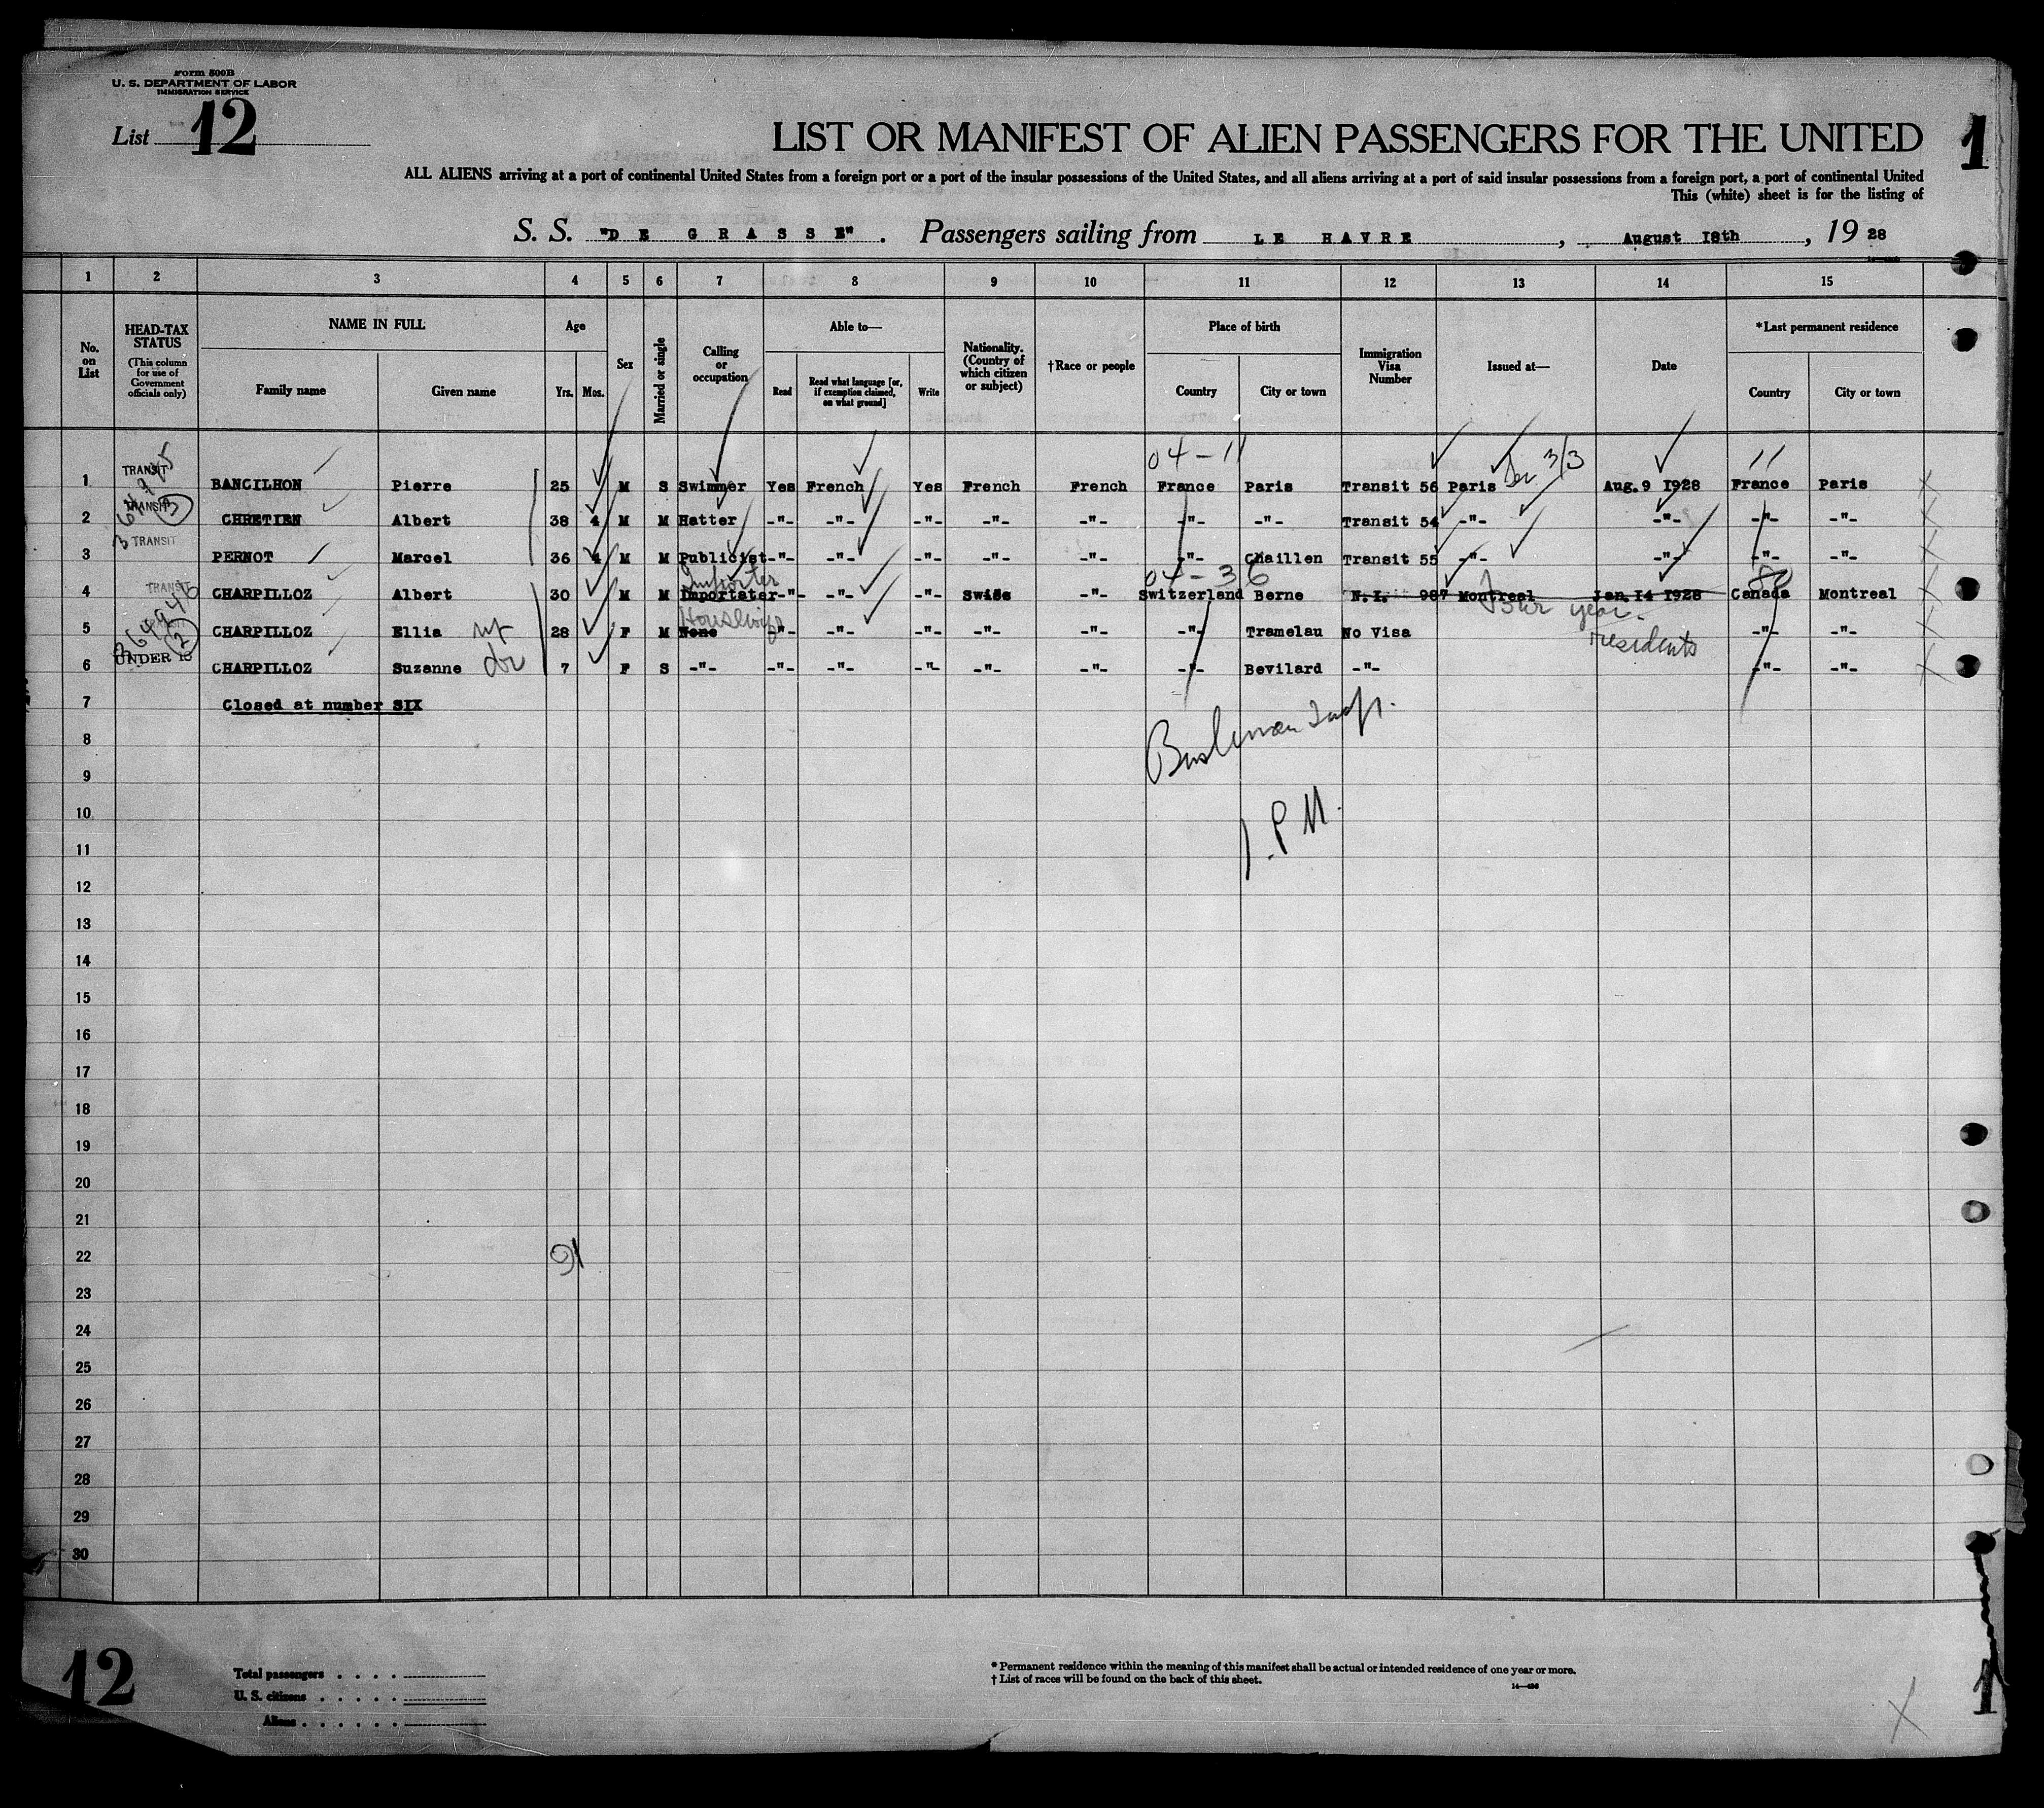 Form 500B
U. S. DEPARTMENT OF LABOR
IMMIGRATION SERVICE
List 12
LIST OR MANIFEST OF ALIEN PASSENGERS FOR THE UNITED 1
ALL ALIENS arriving at a port of continental United States from a foreign port or a port of the insular possessions of the United States, and all aliens arriving at a port of said insular possessions from a foreign port, a port of continental United
This (white) sheet is for the listing of
S. S. "DE GRASSE". Passengers sailing from LE HAVRE, August 18th, 19 28
1 2 3 4 5 6 7 8 9 10 11 12 13 14 15
No. on List
HEAD-TAX STATUS (This column for use of Government officials only)
NAME IN FULL Family name Given name
Age Yrs. Mos.
Sex
Married or single
Calling or occupation
Able to— Read Read what language [or, if exemption claimed, on what ground] Write
Nationality. (Country of which citizen or subject)
†Race or people
Place of birth Country City or town
Immigration Visa Number
Issued at—
Date
*Last permanent residence Country City or town
04-11 3/3 11
1 TRANSIT BANCILHON Pierre 25 M S Swimmer Yes French Yes French French France Paris Transit 56 Paris Aug. 9 1928 France Paris
2 TRANSIT CHRETIEN Albert 38 4 M M Hatter -"- -"- -"- -"- -"- -"- -"- Transit 54 -"- -"- -"- -"-
3 TRANSIT PERNOT Marcel 36 4 M M Publicist -"- -"- -"- -"- -"- -"- Chaillen Transit 55 -"- -"- -"- -"-
Importer 04-36 80
4 TRANSIT CHARPILLOZ Albert 30 M M Importater -"- -"- -"- Swiss -"- Switzerland Berne N.I. 987 Montreal Jan. 14 1928 Canada Montreal
Houslwife year residents
5 CHARPILLOZ Ellia wf 28 F M None -"- -"- -"- -"- -"- -"- Tramelau No Visa -"- -"-
6 UNDER 16 CHARPILLOZ Suzanne dr 7 F S -"- -"- -"- -"- -"- -"- -"- Bevilard -"- -"- -"-
7 Closed at number SIX
8
9
1.P.M.
10
11
12
13
14
15
16
17
18
19
20
21
22
23
24
25
26
27
28
29
30
12
Total passengers
U. S. citizens
Aliens
* Permanent residence within the meaning of this manifest shall be actual or intended residence of one year or more.
† List of races will be found on the back of this sheet.
1